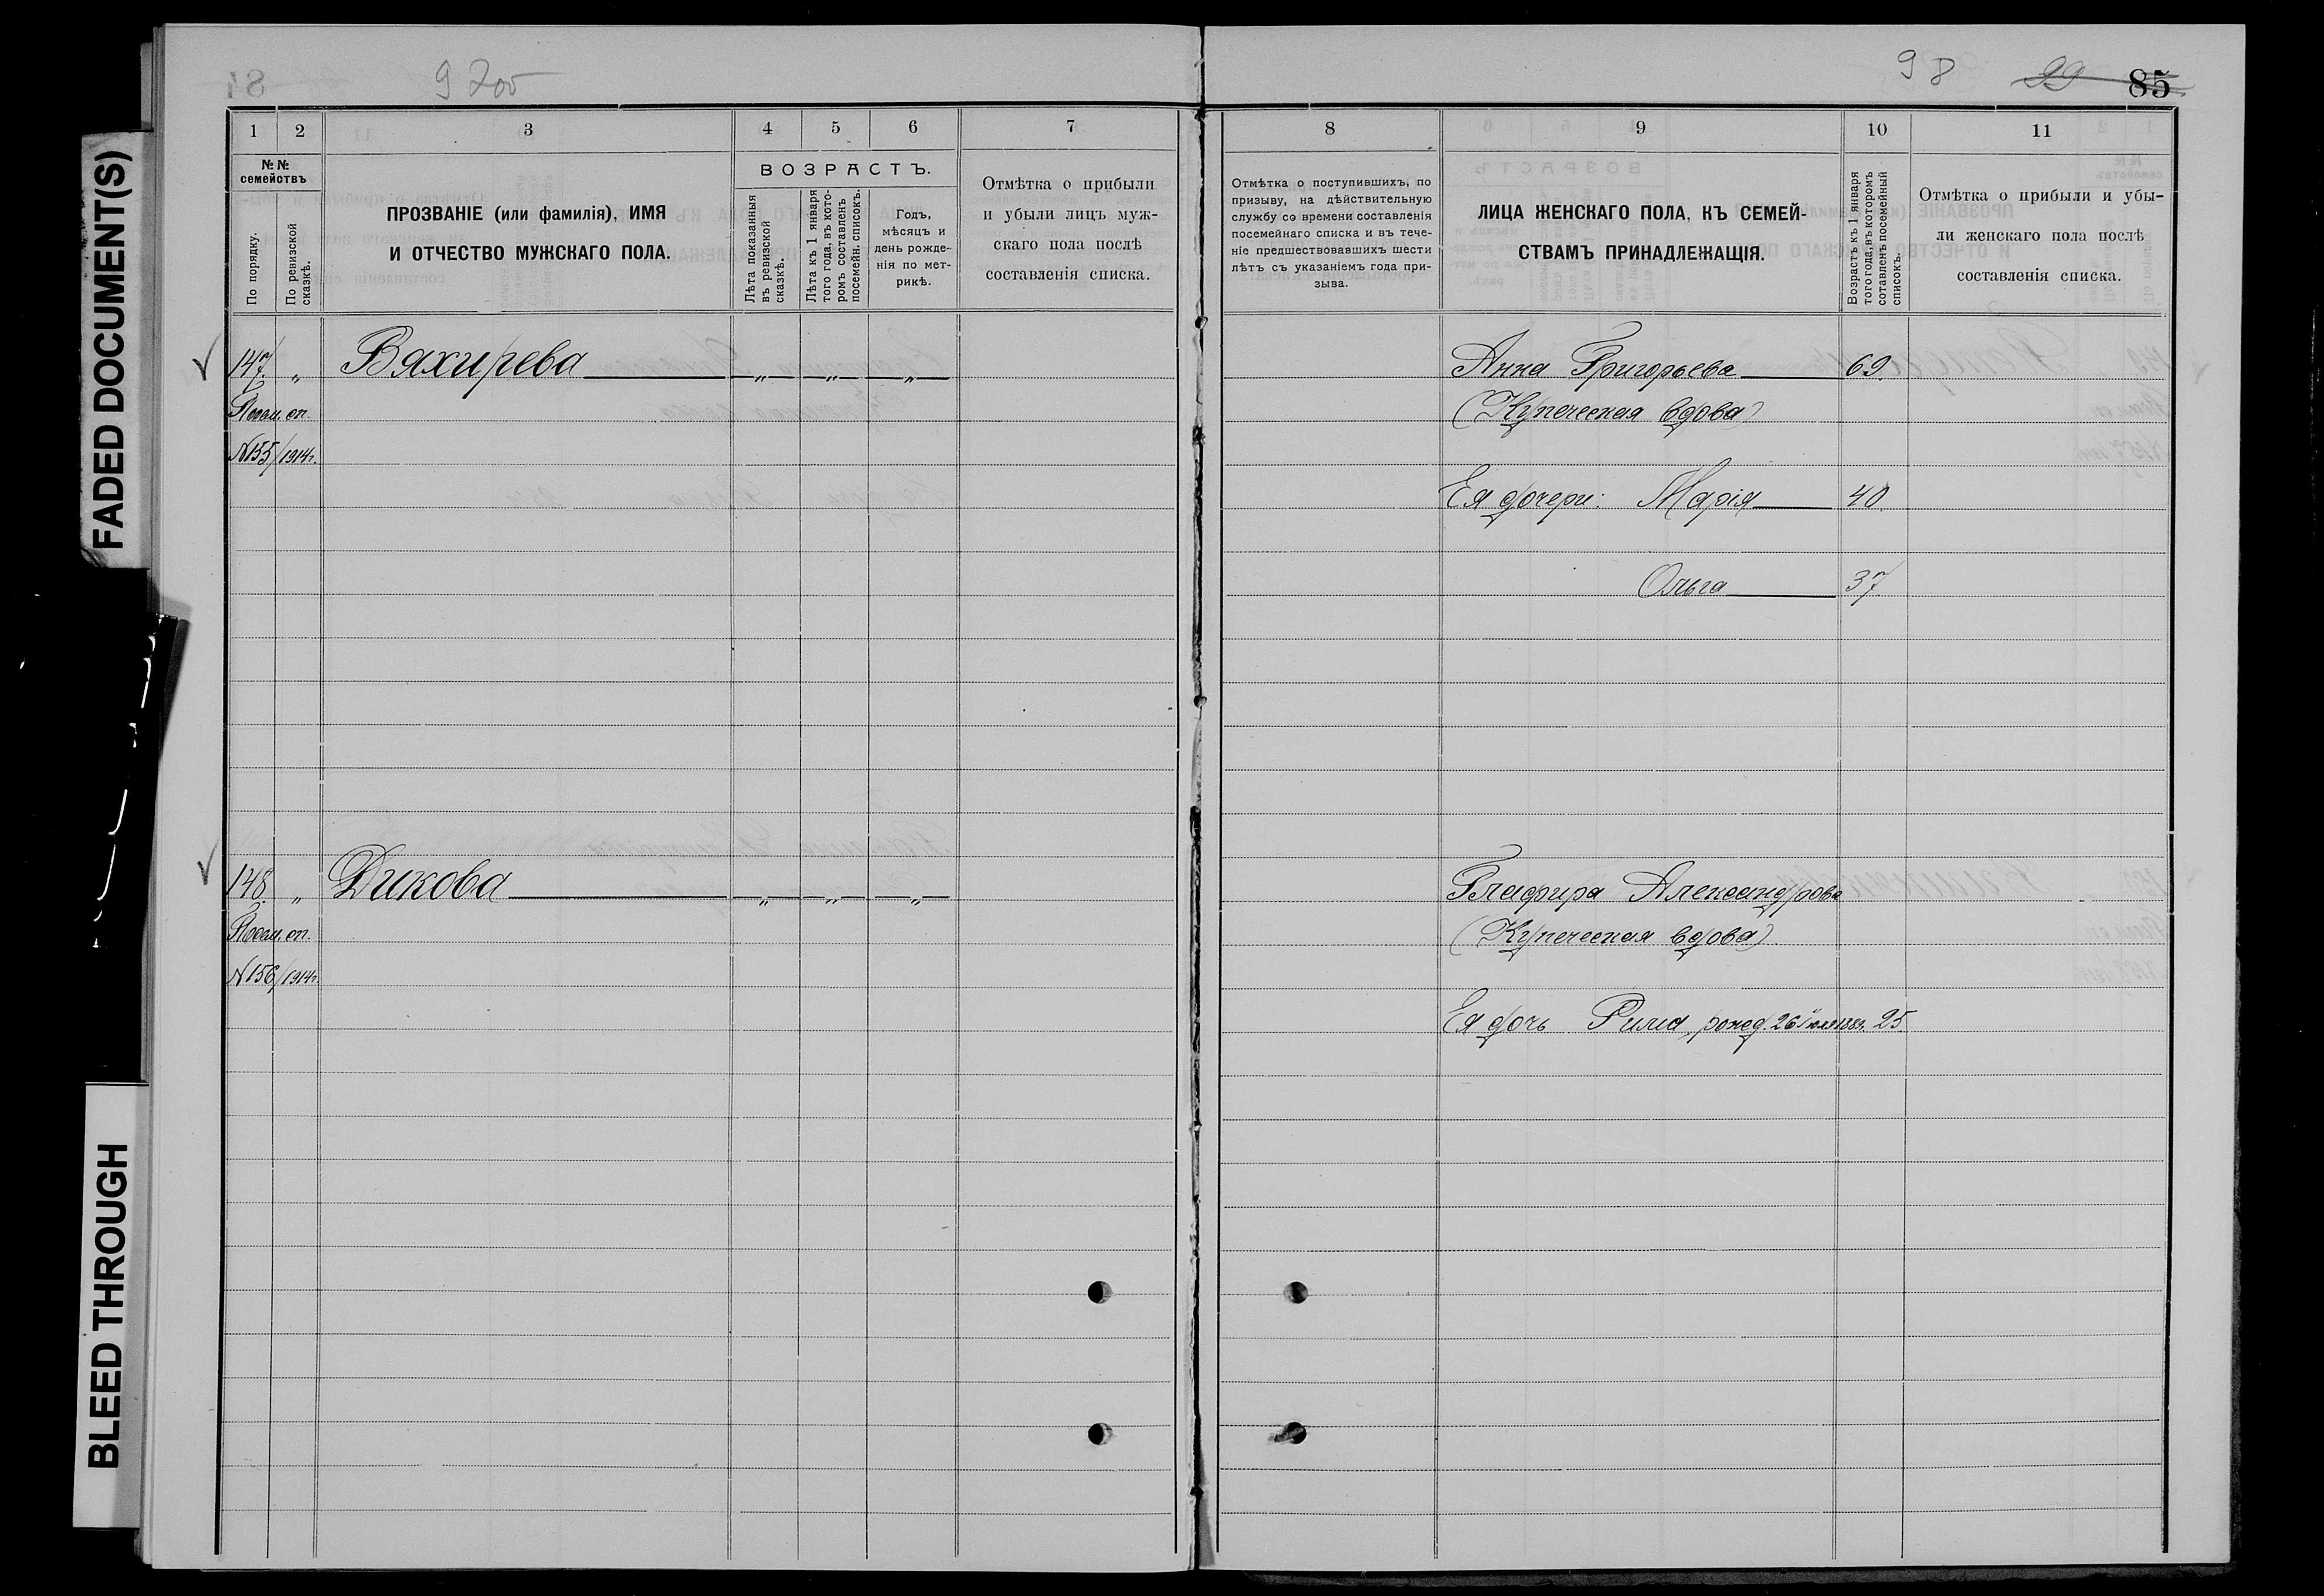 FADED DOCUMENT(S)
BLEED THROUGH
97об
98 99 85
1 2 3 4 5 6 7
№ №
семействъ
По порядку.
По ревизской
сказкѣ.
ПРОЗВАНІЕ (или фамилія), ИМЯ
И ОТЧЕСТВО МУЖСКАГО ПОЛА.
ВОЗРАСТЪ.
Лѣта показанныя
въ ревизской
сказкѣ.
Лѣта къ 1 января
того года, въ кото-
ромъ составленъ
посемейн. списокъ.
Годъ,
мѣсяцъ и
день рожде-
нія по мет-
рикѣ.
Отмѣтка о прибыли
и убыли лицъ муж-
скаго пола послѣ
составленія списка.
147. „ Вяхирева „ „ „
Посем. сп.
№155/1914г.
148. „ Дикова „ „ „
Посем. сп.
№156/1914г.
8 9 10 11
Отмѣтка о поступившихъ, по
призыву, на дѣйствительную
службу со времени составленія
посемейнаго списка и въ тече-
ніе предшествовавшихъ шести
лѣтъ съ указаніемъ года при-
зыва.
ЛИЦА ЖЕНСКАГО ПОЛА, КЪ СЕМЕЙ-
СТВАМЪ ПРИНАДЛЕЖАЩІЯ.
Возрастъ къ 1 января
того года, въ которомъ
сотавленъ посемейный
списокъ.
Отмѣтка о прибыли и убы-
ли женскаго пола послѣ
составленія списка.
Анна Григорьева 69.
(Купеческая вдова)
Ея дочери: Марія 40.
Ольга 37
Глафира Александрова
(Купеческая вдова)
Ея дочь Рима, рожд. 26 Іюля 1889. 25.